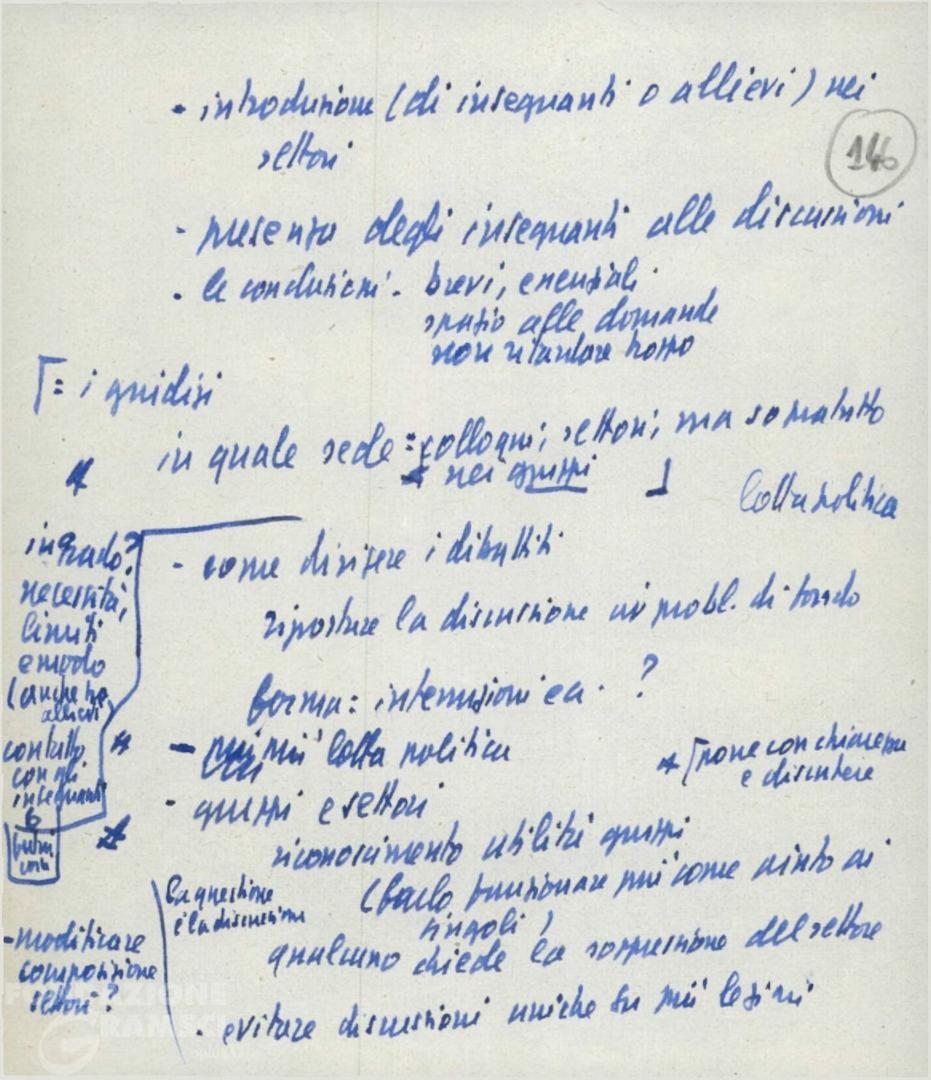 - introduzione (di insegnanti o allievi) nei
settori
146
- presenza degli insegnanti alle discussioni
- le conclusioni - brevi, essenziali
spazio alle domande
non ritardare troppo
[ = i giudizi
in quale sede = colloqui; settori; ma sopratutto
nei gruppi ]
lotta politica
- come dirigere i dibattiti
riportare la discussione ai probl. di fondo
forma: interruzioni ecc. ?
- più lotta politica
[ porre con chiarezza
e discutere
- gruppi e settori
riconoscimento utilità gruppi
(farlo funzionare più come aiuto ai
singoli)
qualcuno chiede la soppressione del settore
- evitare discussioni uniche su più lezioni
necessità,
limiti
e modo
(anche tra
allievi)
contatto
con gli
insegnanti
fuori
corsi
la questione
è la discussione
- modificare
composizione
settori ?
FONDAZIONE
GRAMSCI